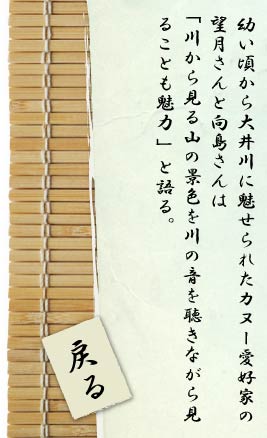 幼い頃から大井川に魅せられたカヌー愛好家の
望月さんと向島さんは
「川から見る山の景色を川の音を聴きながら見
ることも魅力」と語る。
戻る